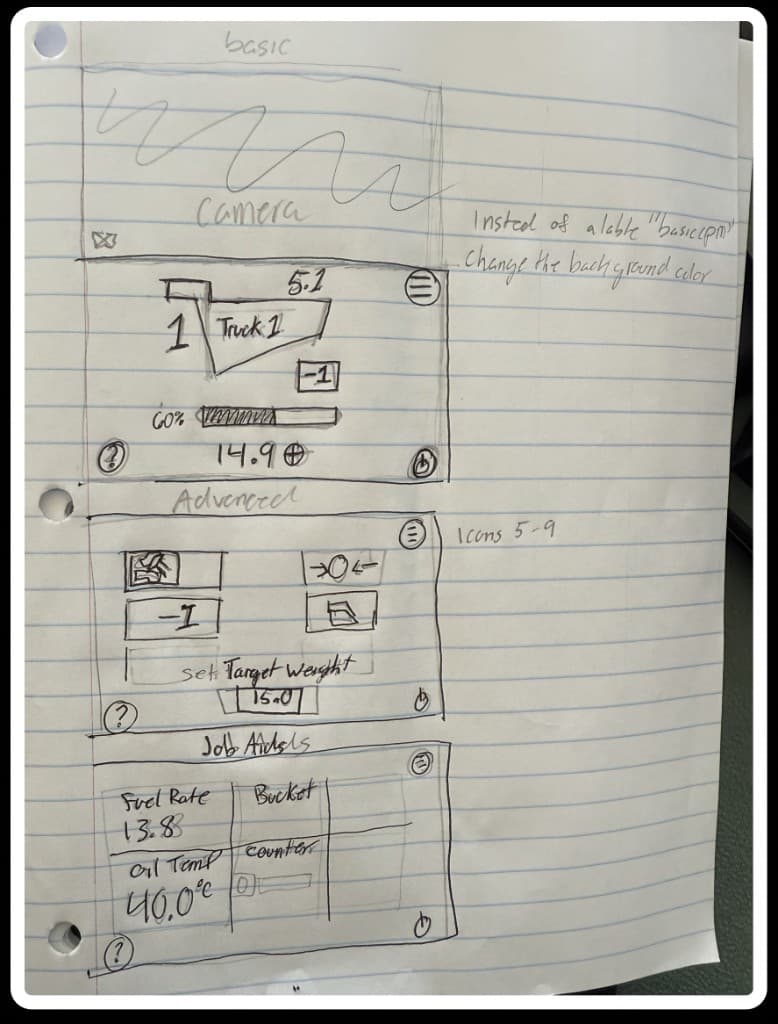 basic
Camera
Insted of a lable "basic(pm)"
Change the background color
5.1
1 Truck 1
-1
60%
14.9
?
Advenced
Icons 5-9
→0←
-1
set Target Weight
15.0
?
Job Aids
Fuel Rate
13.8
Bucket
counter
0
Oil Temp
40.0°C
?